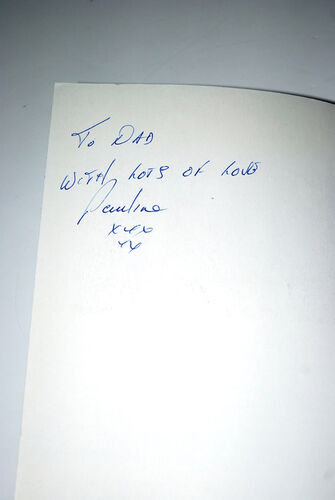 To DAD
WITH LOTS OF LOVE
Pauline
xxx
xx